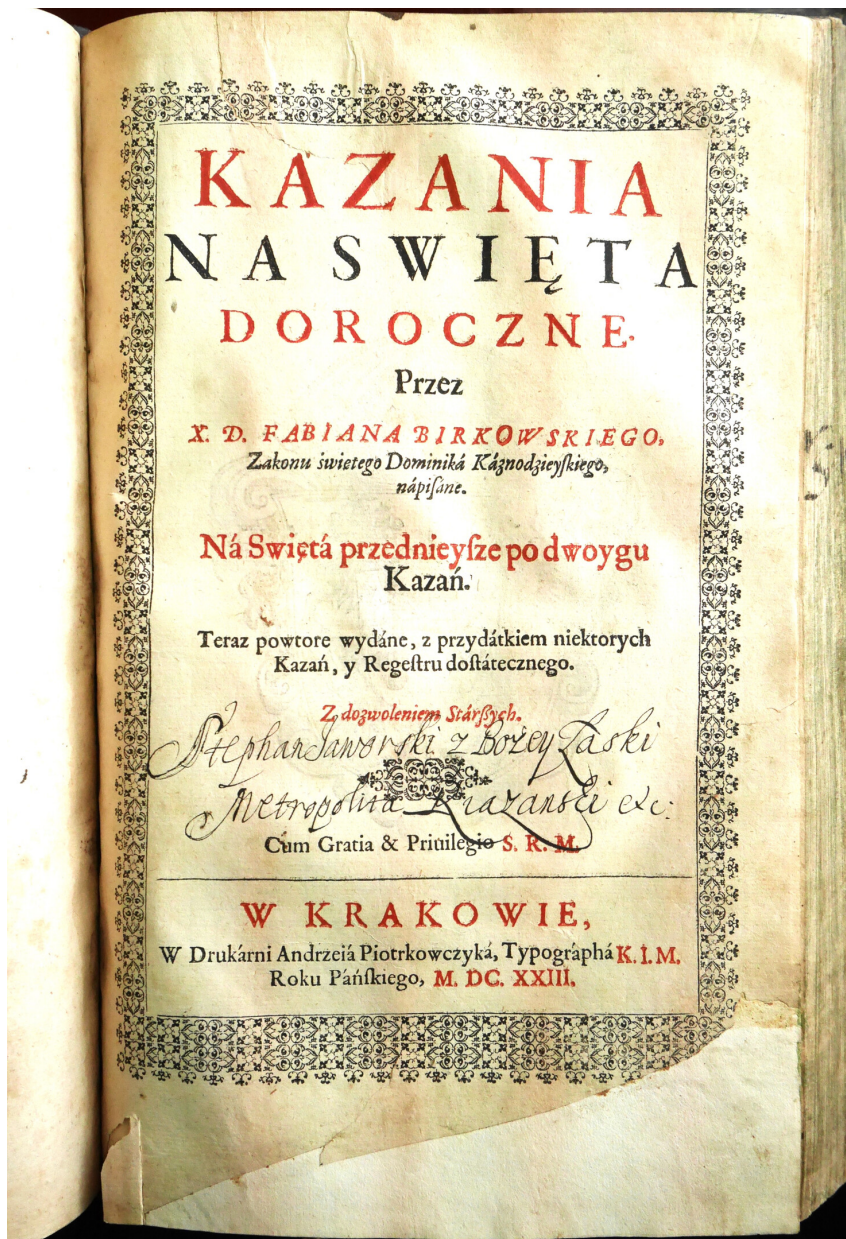 KAZANIA
NA SWIĘTA
DOROCZNE.
Przez
X. D. FABIANA BIRKOWSKIEGO,
Zakonu świetego Dominiká Káznodzieyſkiego,
nápiſane.
Ná Swiętá przednieyſze po dwoygu
Kazań.
Teraz powtore wydáne, z przydátkiem niektorych
Kazań, y Regeſtru doſtátecznego.
Z dozwoleniem Stárßych.
Stephan Jaworski z Bożey Łaski
Metropolita Riazanski etc:
Cum Gratia & Priuilegio S. R. M.
W KRAKOWIE,
W Drukárni Andrzeiá Piotrkowczyká, Typográphá K. I. M.
Roku Páńſkiego, M. DC. XXIII.